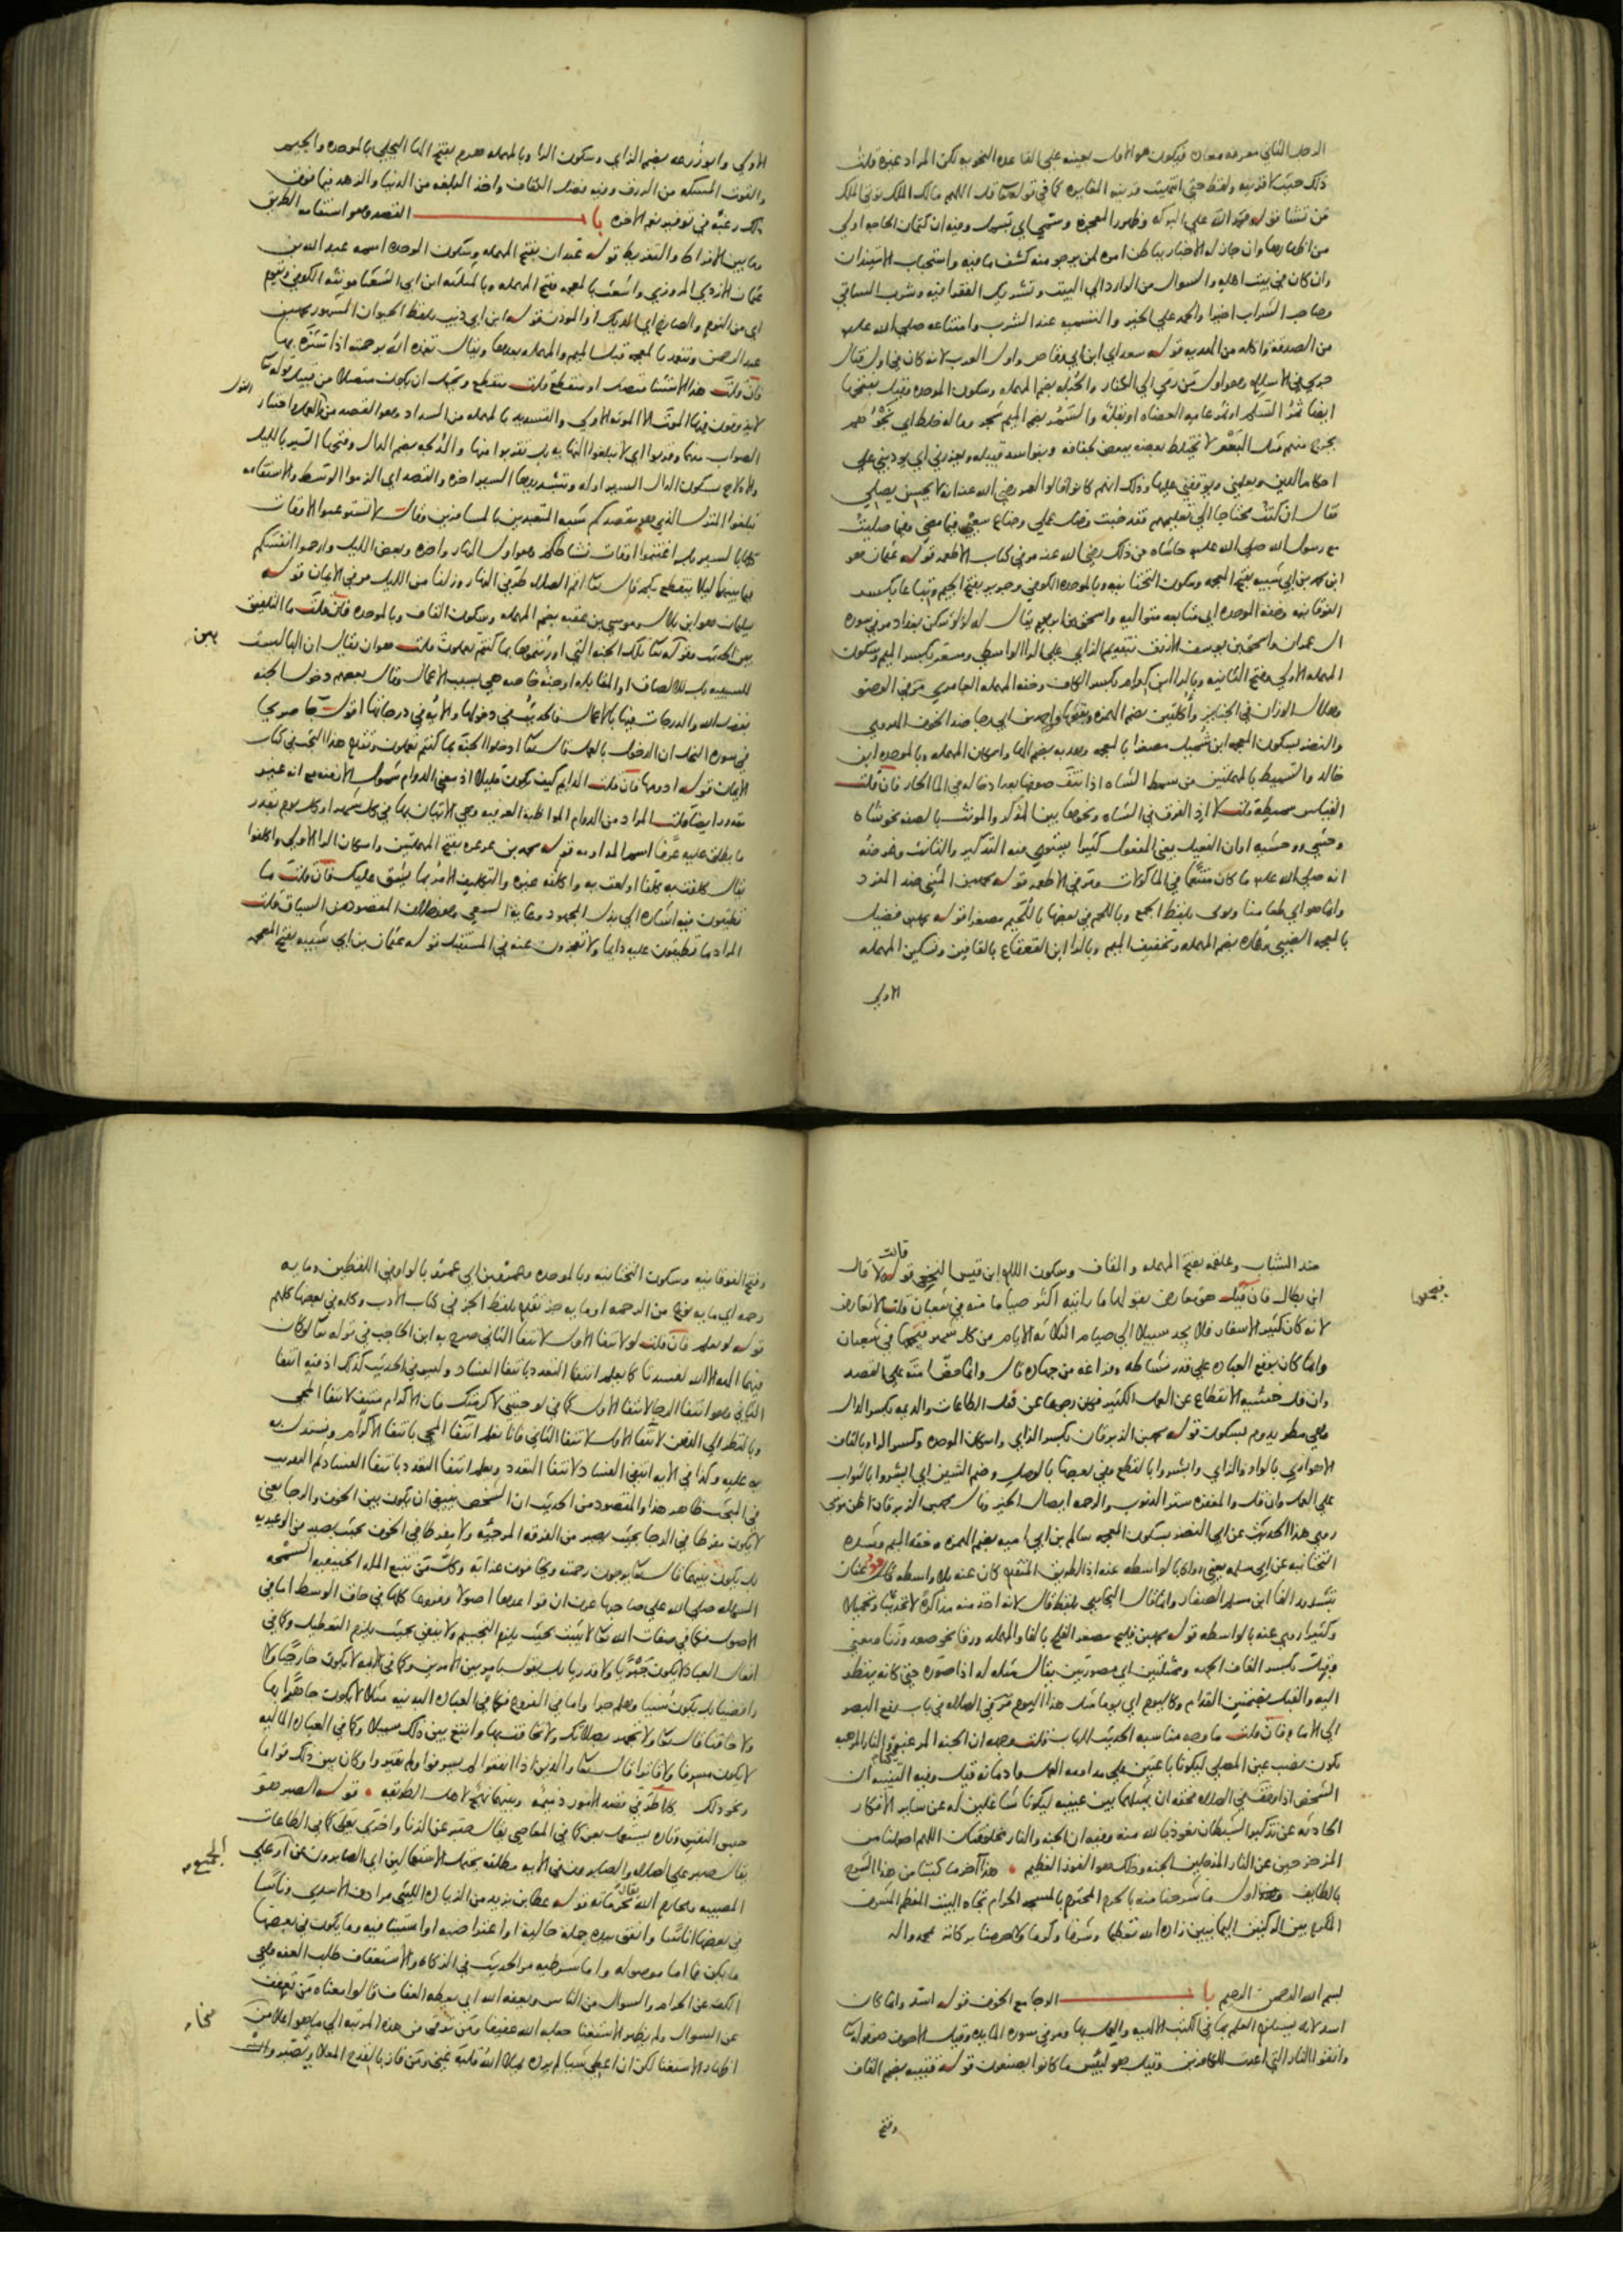 الرجل الثاني معرفه معاد فيكون هو الاول بعينه على القاعده النحويه لكن المراد غيره قلت
ذلك حيث لا قرينه ولفظ حتى اتيت قرينه المغايره كما في قوله تعالى قل اللهم مالك الملك توتي الملك
من تشا قوله فحمد الله على البركه وظهور المعجزه وسمى اي بسمل وفيه ان كتمان الحاجه اولى
من اظهارها وان جاز له الاخبار بباطن امره لمن يرجو منه كشف ما فيه واستحباب الاستيذان
وان كان في بيت اهله والسوال من الوارد الى البيت وتشريك الفقرا فيه وشرب الساقي
وصاحب الشراب اخيرا والحمد على الخير والتسميه عند الشرب وامتناعه صلى الله عليه
من الصدقه واكله من الهديه قوله سعد اي ابن ابي وقاص واول العرب لانه كان في اول قتال
جرى في الاسلام وهو اول من رمى الى الكفار والحبله بضم المهمله وسكون الموحده وقيل بفتحها
ايضا ثمر السلم او ثمر عامه العضاه او بقله والسمر بضم الميم شجر وماله خلط اي نجوهم
يخرج منهم مثل البعر لا يختلط بعضه ببعض لجفافه وبنو اسد قبيله ويعزرني اي يودبني على
احكام الدين ويعلمني ويوقفني عليها وذلك انهم كانوا قالوا لعمر رضي الله عنه انه لا يحسن يصلي
فقال ان كنت محتاجا الى تعليمهم فقد خبت وضل عملي وضاع سعيي فيما مضى وفيما صليت
مع رسول الله صلى الله عليه حاشاه من ذلك رضي الله عنه مر في كتاب الاطعمه قوله عثمان هو
ابن محمد بن ابي شيبه بفتح المعجمه وسكون التحتانيه وبالموحده الكوفي وجرير بفتح الجيم وتباعا بكسر
الفوقانيه وخفه الموحده اي متتابعه متواليه واسحق بن ابراهيم يقال له لولو سكن بغداد مر في سوره
ال عمران واسحق بن يوسف الازرق بتقديم الزاي على الرا الواسطي ومسعر بكسر الميم وسكون
المهمله الاولى وفتح الثانيه وبالرا ابن كدام بكسر الكاف وخفه المهمله العامري مر في الوضو
وهلال الوزان في الجنايز وأكلتين بضم الهمزه وبفتحها واحمد بن ابي رجا ضد الخوف الهروي
والنضر بسكون المعجمه ابن شميل مصغرا بالمعجمه وهدبه بضم الها واسكان المهمله وبالموحده ابن
خالد والسميط بالمهملتين من سمط الشاه اذا نتف صوفها بعد ادخاله في الما الحار فان قلت
القياس سميطه قلت لا اذ الفرق في الشاه ونحوها بين المذكر والمونث بالصفه نحو شاه
وحشي ووحشيه او ان الفعيل بمعنى المفعول كثيرا يستوي فيه التذكير والتانيث وغرضه
انه صلى الله عليه ما كان متنعما في الماكولات ومر في الاطعمه قوله محمد بن المثنى ضد المفرد
وانما هو اي طعامنا ونوى بلفظ الجمع وباللحم في بعضها باللحيم مصغرا قوله محمد بن فضيل
بالمعجمه الضبي وعماره بضم المهمله وتخفيف الميم وبالرا ابن القعقاع بالقافين وتسكين المهمله
الاولى
الاولى وابو زرعه بضم الزاي وسكون الرا وبالمهمله هرم بفتح الها البجلي بالموحده والجيم
والقوت المسكه من الرزق وفيه فضل الكفاف واخذ البلغه من الدنيا والزهد فيما فوق
ذلك رغبة في توفير نعم الاخره باب القصد وهو استقامه الطريق
وما بين الافراط والتفريط قوله عبدان بفتح المهمله وسكون الموحده اسمه عبد الله بن
عثمان الازدي المروزي واشعث بالمعجمه وفتح المهمله وبالمثلثه ابن ابي الشعثا مونثه الكوفي ويقوم
اي من النوم والصارخ اي الديك او الموذن قوله ابن ابي ذيب بلفظ الحيوان المشهور محمد بن
عبد الرحمن وتغمد بالمعجمه قبل الميم والمهمله بعدها ويقال تغمده الله برحمته اذا ستره بها
فان قلت هذا الاستثنا متصل او منقطع قلت منقطع ويحتمل ان يكون متصلا من قبيل قوله تعالى
لا يذوقون فيها الموت الا الموته الاولى والتسديد بالمهمله من السداد وهو القصد من القول والعمل واختيار القول
الصواب منهما وقاربوا اي لا تبلغوا النهايه بل تقربوا منها والدلجه بضم الدال وفتحها السير بالليل
والادلاج بسكون الدال السير اوله وبتشديدها السير اخره والقصد اي الزموا الوسط والاستقامه
تبلغوا المنزل الذي هو مقصدكم شبه المتعبدين بالمسافرين وقال لا تستوعبوا الاوقات
كلها بالسير بل اغتنموا اوقات نشاطكم وهو اول النهار واخره وبعض الليل وارحموا انفسكم
فيما بينهما ليلا ينقطع بكم قال تعالى اقم الصلاه طرفي النهار وزلفا من الليل مر في الايمان قوله
سليمان هو ابن بلال وموسى بن عقبه بضم المهمله وسكون القاف وبالموحده فان قلت ما التلفيق
بين الحديث وقوله تعالى تلك الجنه التي اورثتموها بما كنتم تعملون قلت هو ان يقال ان البا ليست
للسببيه بل للالصاق او المقابله او جنة خاصه هي بسبب الاعمال وقال بعضهم دخول الجنه
بفضل الله والدرجات فيها بالاعمال فالحديث في دخولها والايه في درجاتها اقول جا صريحا
في سوره النحل ان الدخول بالعمل قال تعالى ادخلوا الجنة بما كنتم تعملون وتقدم هذا البحث في كتاب
الايمان قوله ادومها فان قلت الدايم كيف يكون قليلا اذ معنى الدوام شمول الازمنه مع انه غير
مقدور ايضا قلت المراد من الدوام المواظبة العرفيه وهي الاتيان بها في كل شهر او كل يوم بقدر
ما يطلق عليه عرفا اسم المداومه قوله محمد بن عرعره بفتح المهملتين واسكان الرا الاولى واكلفوا
يقال كلفت به كلفا اولعت به واكلفه غيره والتكليف الامر بما يشق عليك فان قلت ما
تطيقون فيه اشاره الى بذل المجهود وغاية السعي وهو خلاف المقصود من السياق قلت
المراد ما تطيقون عليه دايما ولا تعجزون عنه في المستقبل قوله عثمان بن ابي شيبه بفتح المعجمه
ضد الشباب وعلقمه بفتح المهمله والقاف وسكون اللام ابن قيس النخعي قوله قالت لا قال
ابن بطال فان قيل هو معارض بقولها ما رايته اكثر صياما منه في شعبان قلت لا تعارض
لانه كان كثير الاسفار فلا يجد سبيلا الى صيام الثلاثه الايام من كل شهر فيجمعها في شعبان
وانما كان يوقع العباده على قدر نشاطه وفراغه من جهاده قال وانما حض امته على القصد
وان قل خشيه الانقطاع عن العمل الكثير فكان رجوعا عن فعل الطاعات والديمه بكسر الدال
وهي مطر يدوم بسكون قوله محمد بن الزبرقان بكسر الزاي واسكان الموحده وكسر الرا وبالقاف
الاهوازي بالواو والزاي وابشروا بالقطع وفي بعضها بالوصل وضم الشين اي ابشروا بالثواب
على العمل وان قل والمغفره ستر الذنوب والرحمه ايصال الخير وقال محمد بن الزبرقان اظن موسى
روى هذا الحديث عن ابي النضر بسكون المعجمه سالم بن ابي اميه بضم الهمزه وخفه الميم وشده
التحتانيه عن ابي سلمه يعني رواه بالواسطه عنه اذ الطريق المتقدم كان عنه بلا واسطه قال عفان
بتشديد الفا ابن مسلم الصفار وانما قال البخاري بلفظ قال لانه اخذ منه مذاكرة لا تحديثا وتحميلا
وكثيرا روى عنه بالواسطه قوله محمد بن فليح مصغر الفلح بالفا والمهمله ورقا نحو صعد وزنا ومعنى
وقبل بكسر القاف الجهه وممثلتين اي مصورتين يقال مثله له اذا صوره حتى كانه ينظر
اليه والقبل بضمتين القدام وكاليوم اي يوما مثل هذا اليوم مر في الصلاه في باب رفع البصر
الى الامام فان قلت ما وجه مناسبه الحديث للباب قلت وجهه ان الجنه المرغبه والنار المرهبه
تكون نصب عين المصلي ليكونا باعثين على مداومه العمل وادمانه قيل وفيه التنبيه ان
الشخص اذا وقف في الصلاه فحقه ان يمثلهما بين عينيه ليكونا شاغلين له عن ساير الافكار
الحادثه عن تذكير الشيطان نعوذ بالله منه وفيه ان الجنه والنار مخلوقتان اللهم اجعلنا من
المزحزحين عن النار المدخلين الجنه وذلك هو الفوز العظيم هذا آخر ما كتبنا من هذا الشرح
بالطايف وهذا اول ما شرحنا منه بالحرم المحترم بالمسجد الحرام تجاه البيت المعظم المشرف
المكرم بين الركنين اليمانيين زاده الله تعظيما وشرفا وكرما ولا حرمنا بركاته بمحمد واله
بسم الله الرحمن الرحيم باب الرجا مع الخوف قوله اشد وانما كان
اشد لانه يستلزم العلم بما في الكتب الالهيه والعمل بها ومر في سوره المايده وقيل الاخوف هو قوله تعالى
واتقوا النار التي اعدت للكافرين وقيل هو لبئس ما كانوا يصنعون قوله قتيبه بضم القاف
وفتح
وفتح الفوقانيه وسكون التحتانيه وبالموحده وعمرو بن ابي عمرو بالواو في اللفظين وما يه
رحمه اي ما يه نوع من الرحمه او ما يه جز تقدم بلفظ الجز في كتاب الادب وكله في بعضها كلهم
قوله لو يعلم فان قلت لو لانتفا الاول لانتفا الثاني صرح به ابن الحاجب في قوله تعالى لو كان
فيهما الهه الا الله لفسدتا كما يعلم انتفا التعدد بانتفا الفساد وليس في الحديث كذلك اذ فيه انتفا
الثاني وهو انتفا الرجا لانتفا الاول كما في لو جيتني لاكرمتك فان الاكرام منتف لانتفا المجي
وبالنظر الى الذهن لانتفا الاول لانتفا الثاني فانا نعلم انتفا المجي بانتفا الاكرام ويستدل به
به عليه وكذا في الايه انتفى الفساد لانتفا التعدد ويعلم انتفا التعدد بانتفا الفساد تم التقريب
في البحث ظاهر هذا والمقصود من الحديث ان الشخص ينبغي ان يكون بين الخوف والرجا يعني
لا يكون مفرطا في الرجا بحيث يصير من الفرقه المرجئه ولا مفرطا في الخوف بحيث يصير من الوعيديه
بل يكون بينهما قال تعالى يرجون رحمته ويخافون عذابه وكل من تتبع المله الحنيفيه السمحه
السهله صلى الله على صاحبها عرف ان قواعدها اصولا وفروعا كلها في حاق الوسط اما في
الاصول فكما في صفات الله تعالى لا يثبت بحيث يلزم التجسيم ولا ينفي بحيث يلزم التعطيل وكما في
افعال العباد لا يكون جبريا ولا قدريا بل يقول بامر بين الامرين وكما في الامامه لا يكون خارجيا ولا
رافضيا بل يكون سنيا وهلم جرا واما في الفروع فكما في العباده البدنيه مثلا لا يكون جاهرا بها
ولا خافتا قال تعالى ولا تجهر بصلاتك ولا تخافت بها وابتغ بين ذلك سبيلا وكما في العباده الماليه
لا يكون مسرفا ولا قاترا قال تعالى والذين اذا انفقوا لم يسرفوا ولم يقتروا وكان بين ذلك قواما
ونحو ذلك كلا طرفي قصد الامور ذميم وبينهما نهج لاهل الطريقه قوله الصبر هو
حبس النفس وتاره يستعمل بعن كما في المعاصي يقال صبر عن الزنا واخرى بعلى كما في الطاعات
يقال صبر على الصلاه والصابرون في الايه مطلقه يحتمل الاستعمالين اي الصابرون عن او على
المصيبه ومحارم الله محرماته قوله عطا بن يزيد من الزياده الليثي مرادف الاسدي وناسا
في بعضها اناسا وانفق بيده جملة حالية او اعتراضيه او استينافيه وما يكون في بعضها
ما يكن فما اما موصوله واما شرطيه مر الحديث في الزكاه والاستعفاف طلب العفه وهي
الكف عن الحرام والسوال من الناس ويعفه الله اي يعطه العفاف قالوا معناه من تعفف
عن السوال ولم يظهر الاستغنا جعله الله عفيفا ومن ترقى من هذه المرتبه الى ما هو اعلا من
اظهار الاستغنا لكن ان اعطي شيئا لم يرده يملا الله قلبه غنى ومن فاز بالقدح المعلى وتصبر وان